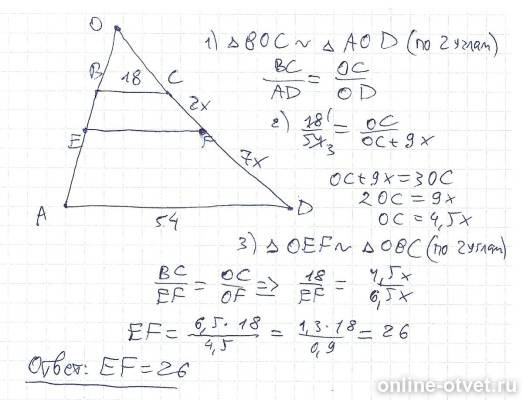 O
B 18 C
2x
E F
7x
A 54 D
1) △BOC ~ △AOD (по 2 углам)
BC/AD = OC/OD
2) 18¹/54₃ = OC/OC+9x
OC+9x=3OC
2OC=9x
OC=4,5x
3) △OEF ~ △OBC (по 2 углам)
BC/EF = OC/OF => 18/EF = 4,5x/6,5x
EF = 6,5·18/4,5 = 1,3·18/0,9 = 26
Ответ: EF=26
online-otvet.ru